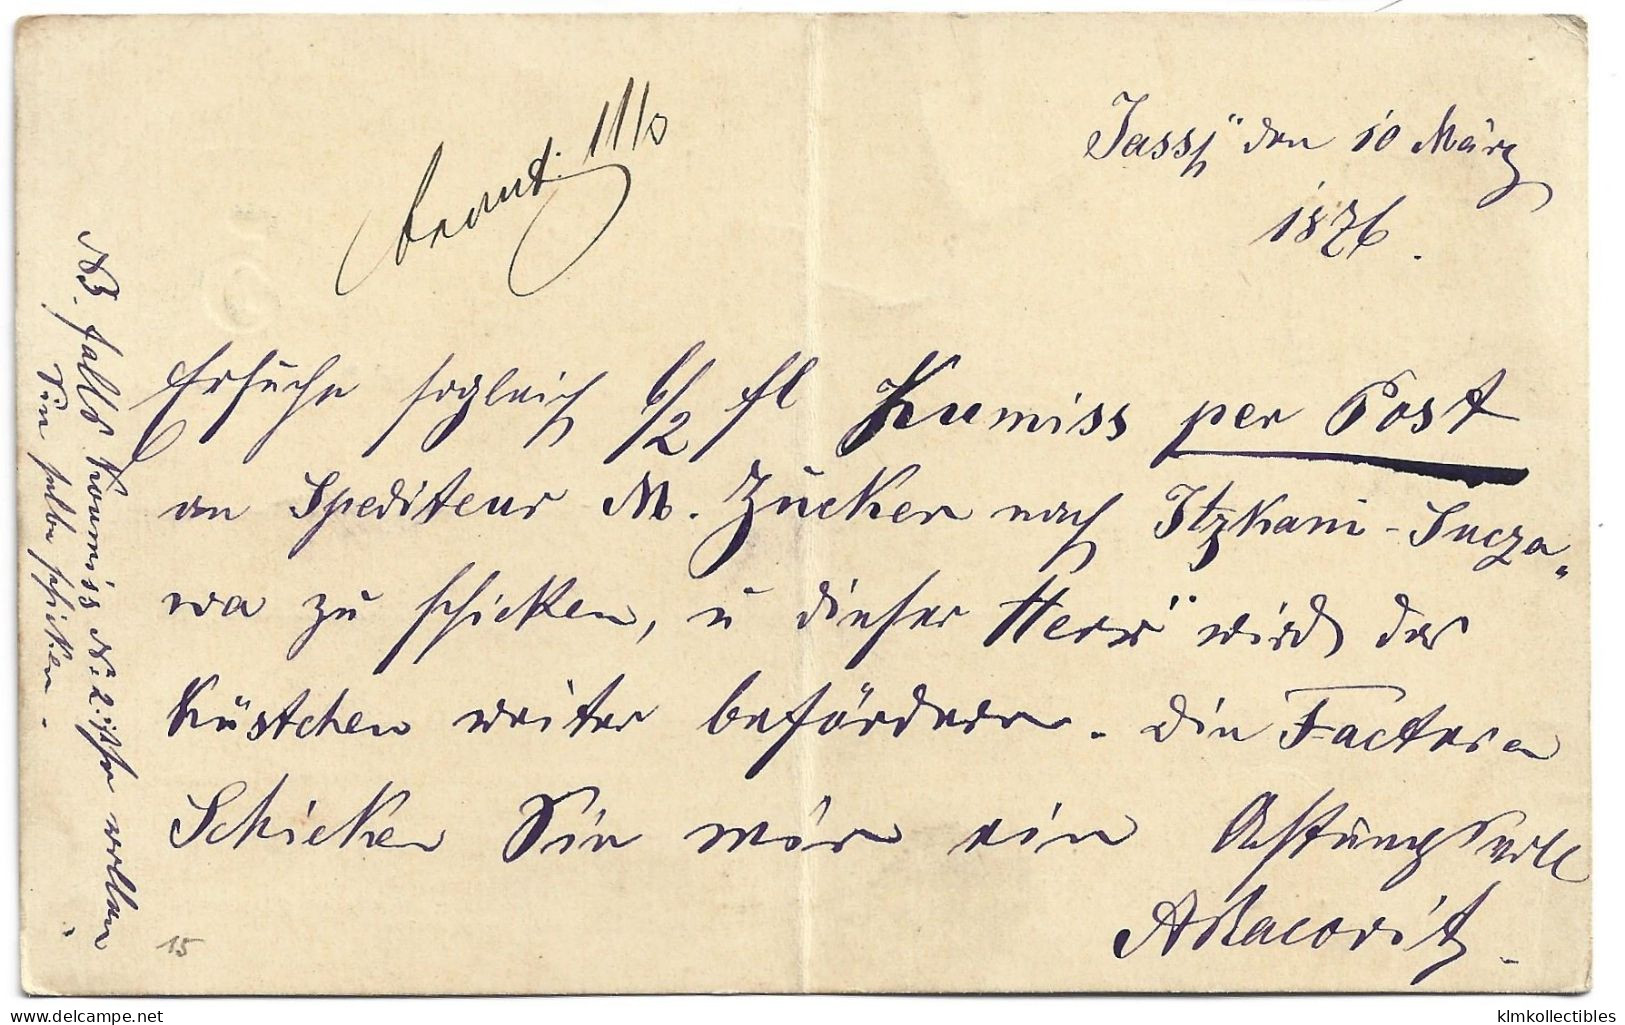 Jassy den 10 März
1876.
Ersuche sogleich 6/2 fl Kumiss per Post
an Spediteur M. Zucker nach Itzkani-Sucza„
wa zu schicken, u dieser Herr wird das
Kästchen weiter befördern. Die Factura
Schicken Sie mir ein Achtungsvoll
NB. falls Koumiss N. 2 wollen
Sie selbe schicken.
15
klmkollectibles